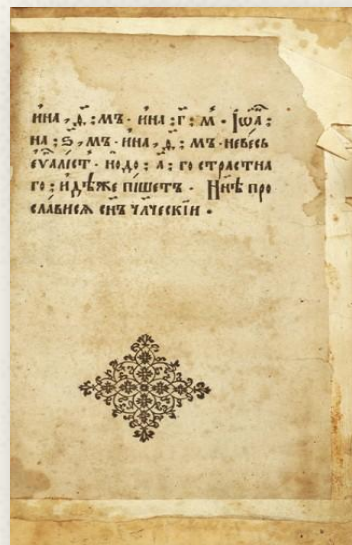 ина , д҃ : мъ · ина : г҃ : м҃ · Іѡа҃ :
на : ѕ҃ , мъ · ина , д҃ : мъ · невесь
еѵⷢ҇аліст · нодо : а҃ : го страстна
го : идѣже пишетъ · Нн҃ѣ про
славися сн҃ъ чл҃ческіи ·